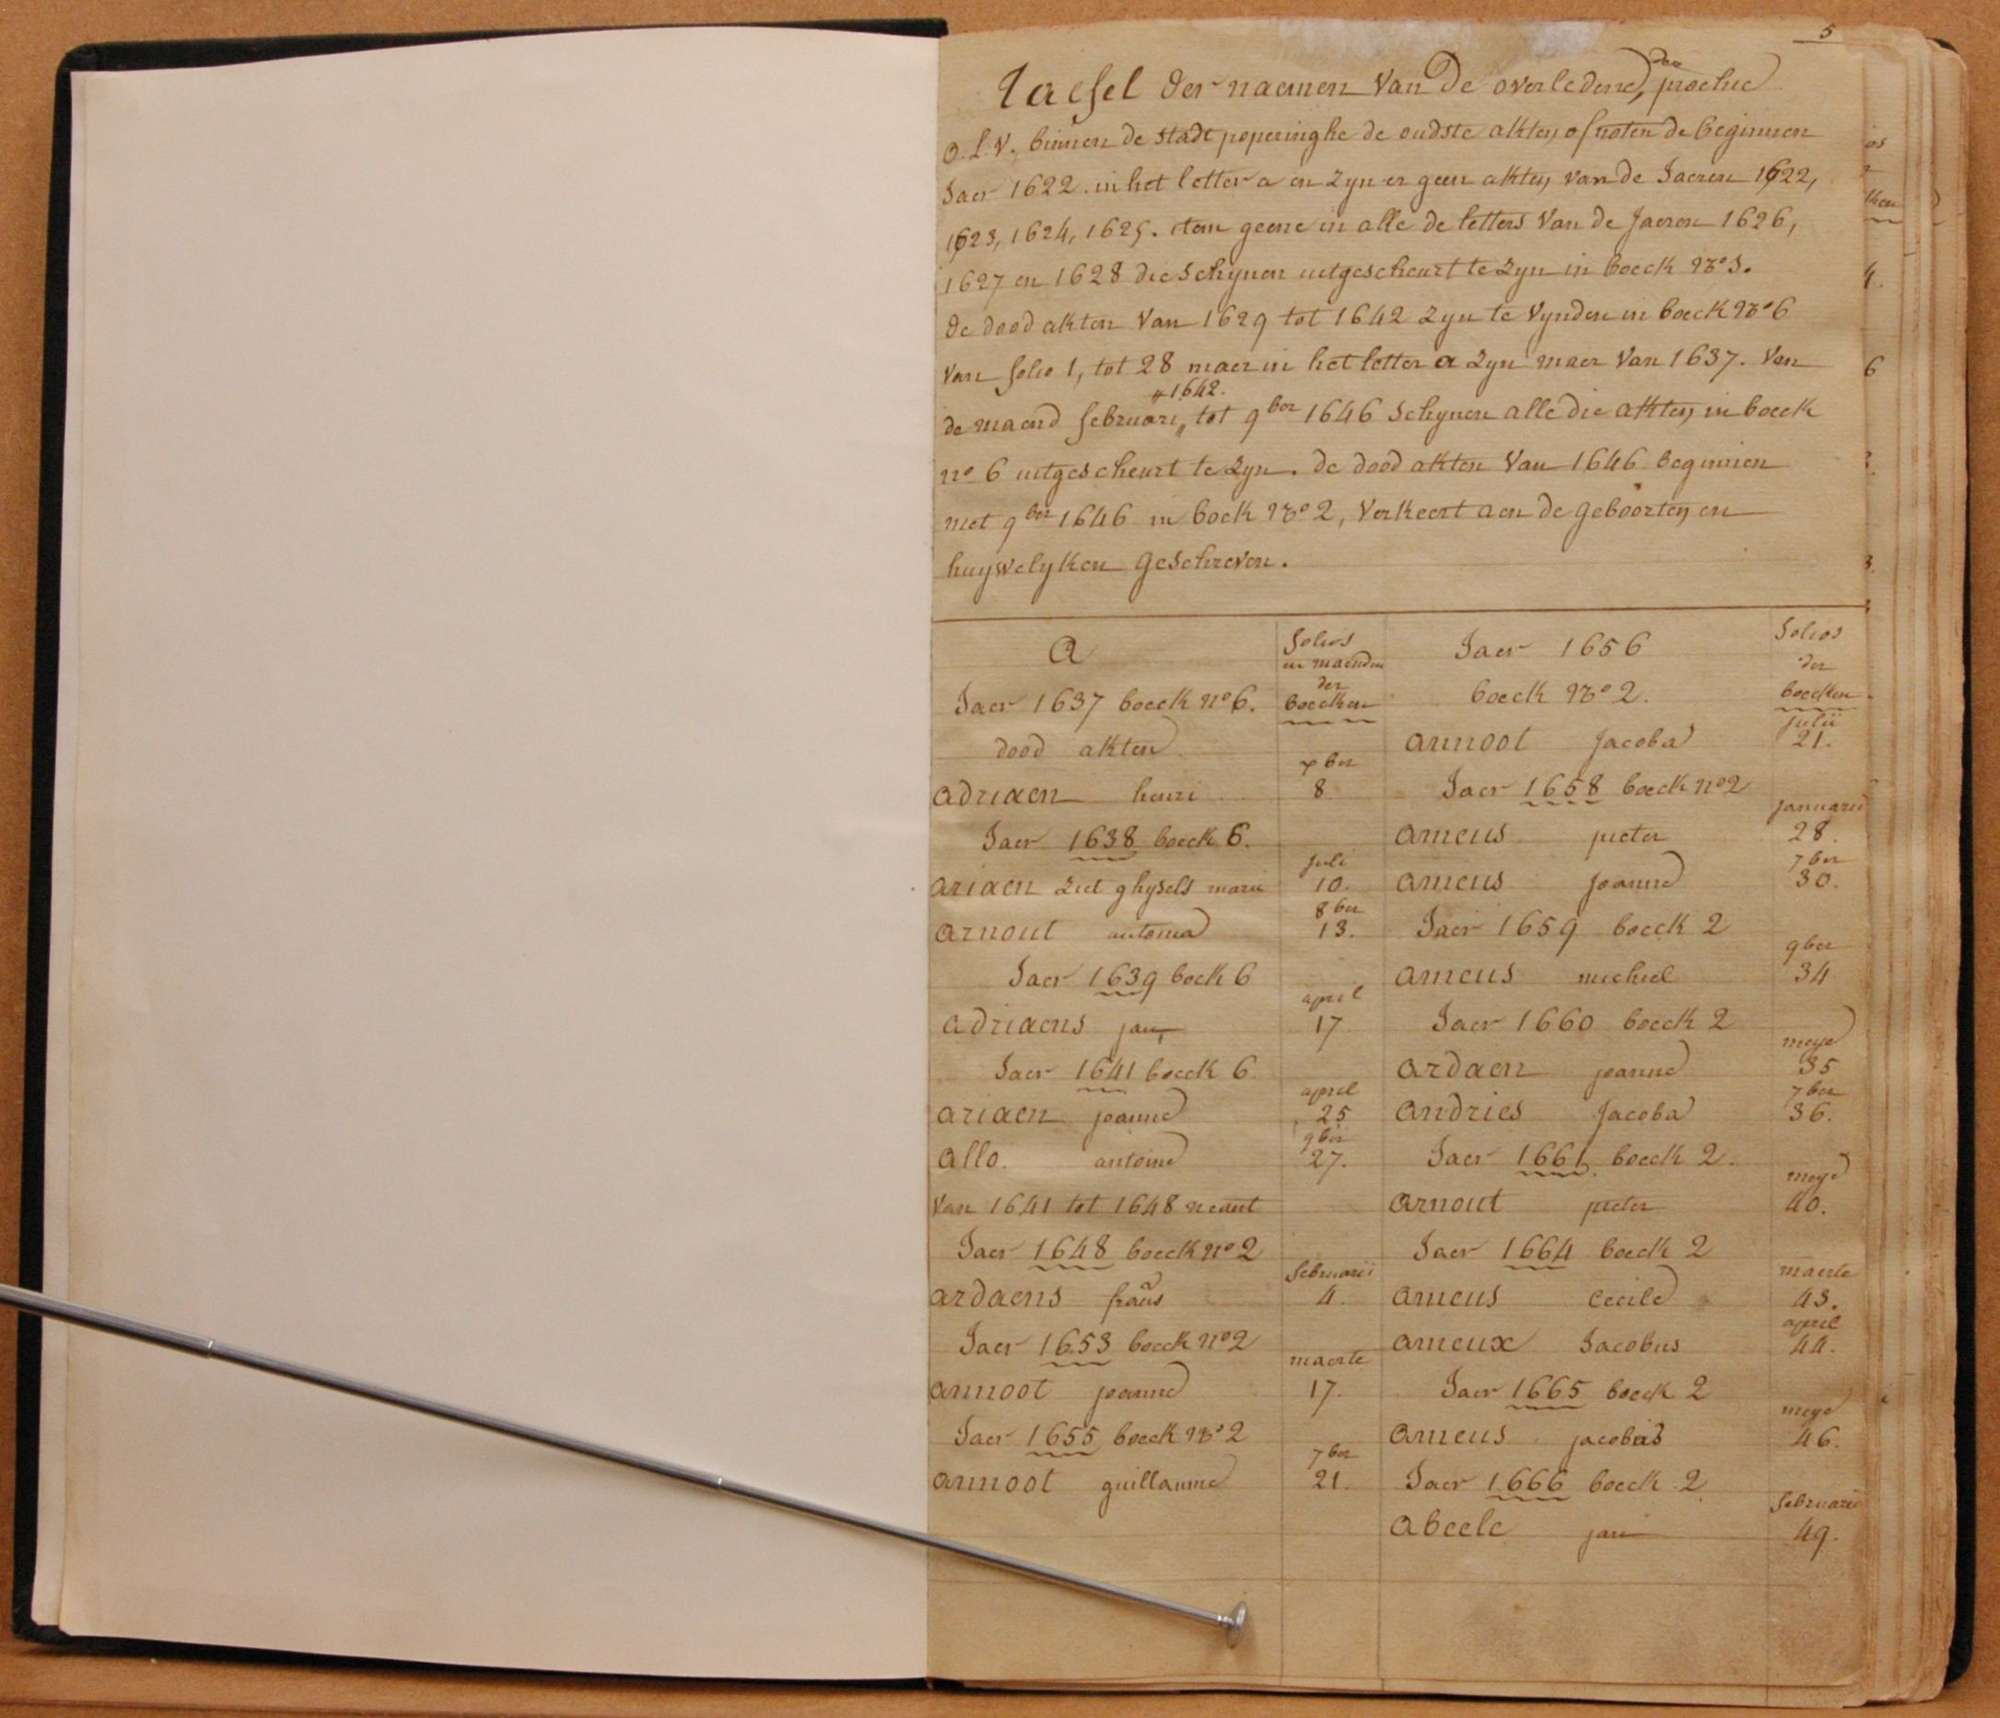 5
Taefel der naemen van de overledene, der prochie
O.L.V. binnen de stadt poperinghe de oudste akten of noten de beginnen
Jaer 1622. in het letter a en zyn er geen akten van de Jaeren 1622,
1623, 1624, 1625. item geene in alle de letters van de Jaeren 1626,
1627 en 1628 die schynen uitgescheurt te zyn in boeck No 3.
de dood akten van 1629 tot 1642 zyn te vynden in boeck No 6
van folio 1, tot 28 maer in het letter a zyn maer van 1637. van
de maend februari „1642. tot 9ber 1646 schynen alle die akten in boeck
no 6 uitgescheurt te zyn. de dood akten van 1646 beginnen
met 9ber 1646 in boek No 2, verkeert aen de geboorten en
huywelyken geschreven.
A
folios en maenden der boecken
Jaer 1637 boeck no 6.
dood akten
adriaen henri xber 8
Jaer 1638 boeck 6.
ariaen ziet ghysels marie juli 10.
arnout antonia 8ber 13.
Jaer 1639 boek 6
adriaens jan april 17
Jaer 1641 boeck 6
ariaen joanne april 25
allo. antoine 9ber 27.
van 1641 tot 1648 neant
Jaer 1648 boeck no 2
ardaens frans februarii 4.
Jaer 1653 boeck no 2
annoot joanne maerte 17.
Jaer 1655 boeck No 2
annoot guillaume 7ber 21.
Jaer 1656
folios der boecken
boeck No 2.
annoot Jacoba julii 21.
Jaer 1658 boeck no 2
ameus pieter januarii 28.
ameus joanne 7ber 30.
Jaer 1659 boeck 2
ameus michiel 9ber 34
Jaer 1660 boeck 2
ardaen joanne meye 35
andries Jacoba 7ber 36.
Jaer 1661 boeck 2.
arnout pieter meye 40.
Jaer 1664 boeck 2
ameus Cecile maerte 43.
ameux Jacobus april 44.
Jaer 1665 boeck 2
ameus jacobus meye 46.
Jaer 1666 boeck 2
abeele jan februarii 49.